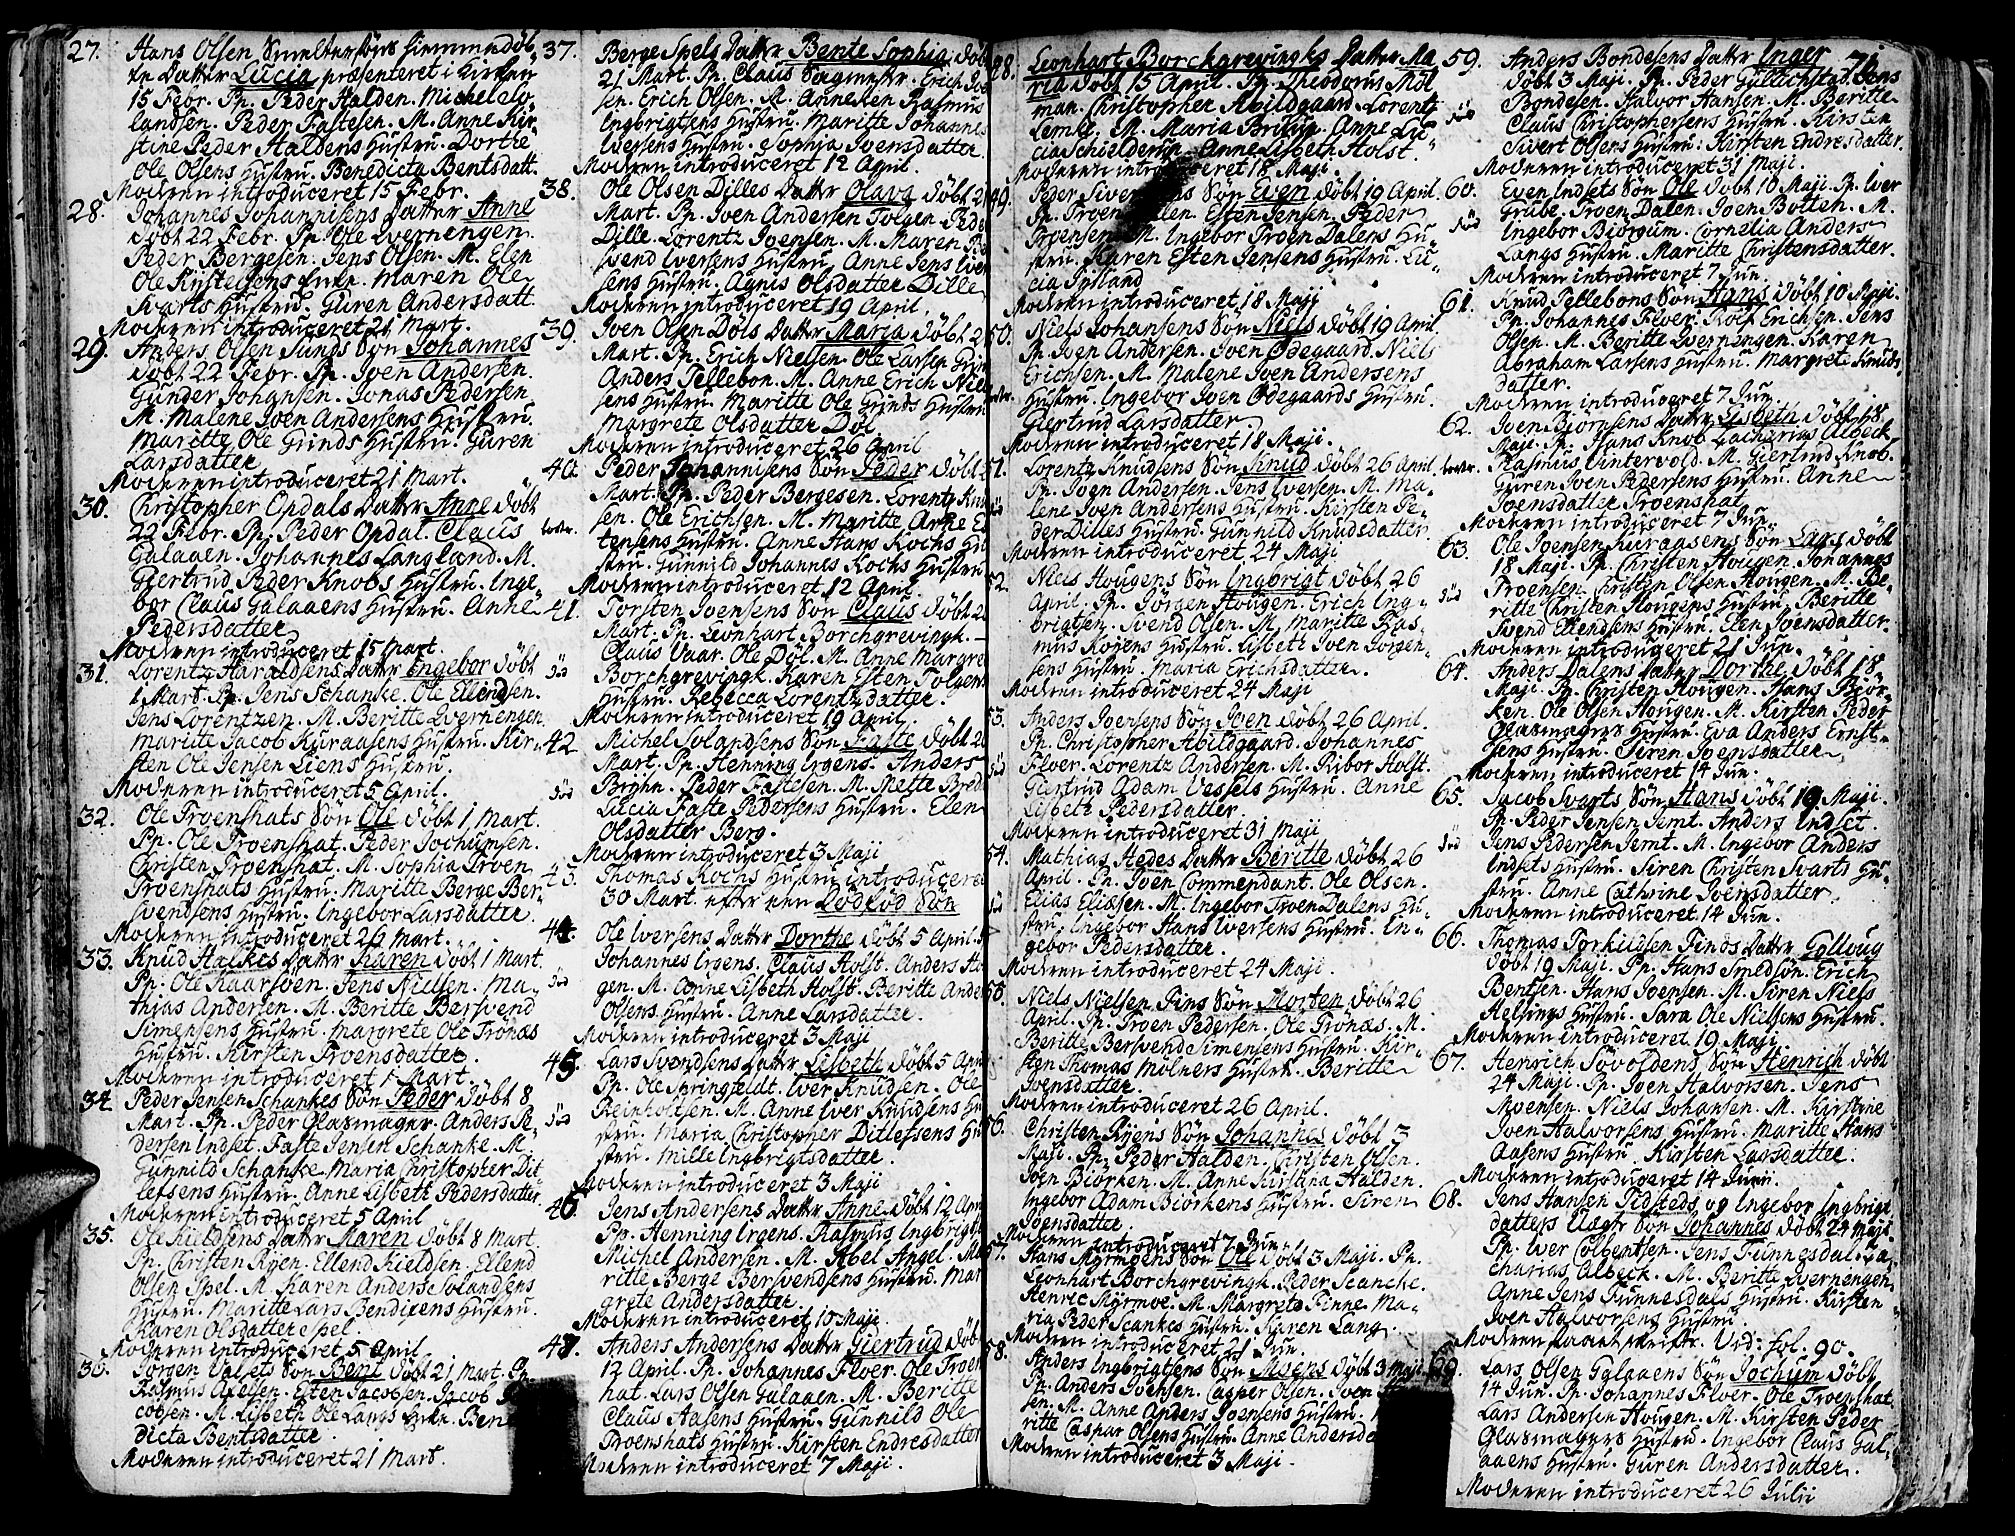 27. Hans Olsen Smeltersøns hiemmedøb-
te Datter Lucia præsenteret i Kirken
15 Febr. Pp. Peder Halden. Michel So-
landsen. Peder Fastesen. M. Anne Kir-
stine Peder Haldens Hustru. Dorthe
Ole Olsens Hustru. Benedicta Bentsdatt.
Moderen introduceret 15 Febr.
28. Johannes Johannisens Datter Anne
døbt 22 Febr. Pp. Ole Qvernengen.
Peder Bergesen. Jens Olsen. M. Elen
Ole Kirstelsens Enke. Maren Ole
Svarts Hustru. Guren Andersdatt.
Moderen introduceret 21 Mart.
29. Anders Olsen Sunds Søn Johannes
døbt 22 Febr. Pp. Joen Andersen
Gunder Johansen. Jonas Pedersen
M. Malene Joen Andersens Hustru.
Maritte Ole Grinds Hustru. Guren
Larsdatter
Moderen introduceret 21 Mart.
30. Christopher Opdals Datter Anne døbt
22 Febr. Pp. Peder Opdal. Claus
Galaaen. Johannes Langland. M.
Giertrud Peder Knobs Hustru. Inge-
bor Claus Galaaens Hustru. Anne
Pedersdatter
Moderen introduceret 15 Mart.
31. Lorentz Haraldsens Datter Engebor døbt
1 Mart. Pp. Jens Schanke. Ole Ellendsen.
Jens Lorentzen. M. Beritte Qvernengen.
Maritte Jacob Kuraasens Hustru. Kir-
sten Ole Jensen Liens Hustru.
Moderen introduceret 5 April.
32. Ole Troenshats Søn Ole døbt 1 Mart.
Pp. Ole Troenshat. Peder Jochumsen.
Christen Troenshat. M. Sophia Troen
Troenshats Hustru. Maritte Berge Ber-
svendsens Hustru. Ingebor Larsdatter.
Moderen introduceret 26 Mart.
33. Knud Halkes Datter Karen døbt 1 Mart.
Pp. Ole Kaarsven. Jens Nielsen. Ma-
thias Andersen. M. Beritte Bersvend
Simensens Hustru. Margrete Ole Trønæs
Hustru. Kirsten Troensdatter.
Moderen introduceret 1 Mart.
34. Peder Jensen Schankes Søn Peder døbt 8
Mart. Pp. Peder Glasmager. Anders Pe-
dersen Indset. Faste Jensen Schanke. M.
Gunnild Schanke. Maria Christopher Dit-
lefsens Hustru. Anne Lisbeth Pedersdatter.
Moderen introduceret 5 April
35. Ole Kieldsens Datter Karen døbt 8 Mart.
Pp. Christen Ryen. Ellend Kieldsen. Ellend
Olsen Spel. M. Karen Anders Solandsens
Hustru. Maritte Lars Bendixens Hustru.
Karen Olsdatter Spel.
Moderen introduceret 5 April
36. Jørgen Valsets Søn Bent døbt 21 Mart. Pp.
Rasmus Axelsen. Esten Jacobsen. Jacob
cobsen. M. Lisbeth Ole Langs Enke. Bene
dicta Bentsdatter.
Moderen introduceret 21 Mart.
37. Berge Spels Datter Bente Sophia døb
21 Mart. Pp. Claus Sagmester. Erich
sen. Erich Olsen. M. Anneken Rasmus
Ingbrigtsens Hustru. Maritte Johannes
Iversens Hustru. Sophia Joensdatter.
Moderen introduceret 12 April.
38. Ole Olsen Dilles Datter Olava døbt 2
Mart. Pp. Joen Andersen Tolgen. Peder
Dille. Lorentz Joensen. M. Maren
Svend Iversens Hustru. Anne Jens Iver
sens Hustru. Agnis Olsdatter Dille
Moderen introduceret 19 April.
39. Joen Olsen Døls Datter Maria døbt 2
Mart. Pp. Erich Nielsen. Ole Larsen
Anders Tellebon. M. Anne Erich Niel
sens Hustru. Maritte Ole Grinds Hustru
Margrete Olsdatter Døl
Moderen introduceret 26 April
40. Peder Johannisens Søn Peder døbt 2
Mart. Pp. Peder Bergesen. Lorentz Knud
sen. Ole Erichsen. M. Maritte Arne E
stensens Hustru. Anne Hans Kochs Hu
stru. Gunnild Johannes Kochs Hustru
Moderen introduceret 12 April.
41. Torsten Joensens Søn Claus døbt 2
Mart. Pp. Leonhart Borchgrevingk.
Claus Vaar. Ole Døl. M. Anne Margre
død Borchgrevingk. Karen Esten Tolgens
Hustru. Rebecca Lorentzdatter.
Moderen introduceret 19 April.
42 Michel Solandsens Søn Faste døbt 2
Mart. Pp. Henning Irgens. Anders
død Bryhn. Peder Fastesen. M. Mette Bred
Lucia Faste Pedersens Hustru. Elen
Olsdatter Berg.
Moderen introduceret 3 Maji
43. Thomas Kochs Hustru introduceret
30 Mart. efter een Dødfød Søn
44. Ole Iversens Datter Dorthe døbt 5 April.
Johannes Irgens. Claus Holst. Anders Ho
død gen. M. Anne Lisbeth Holst. Beritte Ander
Olsens Hustru. Anne Larsdatter.
Moderen introduceret 3 Maji
45. Lars Svendsens Datter Lisbeth døbt 5 April
Pp. Ole Springfeldt. Iver Knudsen. Ole
død Reinholtsen. M. Anne Iver Knudsens Hu
stru. Maria Christopher Ditlefsens Hu
stru. Mille Ingbrigtsdatter.
Moderen introduceret 3 Maji
46. Jens Andersens Datter Anne døbt 12 April
Pp. Henning Irgens. Rasmus Ingbrigts
Michel Andersen. M. Abel Angel. Ma
ritte Berge Bersvendsens Hustru. Mar
grete Andersdatter.
Moderen introduceret 10 Maji.
47. Anders Andersens Datter Giertrud døbt
12 April. Pp. Johannes Floer. Ole Troens
hat. Lars Olsen Galaaen. M. Beritte
Claus Aasens Hustru. Gunnild Ole
Troenshats Hustru. Kirsten Endresdatter
Moderen introduceret 7 Maji.
48. Leonhart Borchgrevingks Datter Ma
ria døbt 15 April. Pp. Theodorus Møl
man. Christopher Abildgaard. Lorentz
Lemke. M. Maria Bruun. Anne Lu-
cia Schielderup. Anne Lisbeth Holst.
Moderen introduceret 18 Maji.
49. Peder Siversens Søn Even døbt 19 April
Pp. Troen Dalen. Esten Jensen. Peder
Troensen. M. Ingebor Troen Dalens Hu-
stru. Karen Esten Jensens Hustru. Lu-
cia
Moderen introduceret 18 Maji
50. Niels Johansens Søn Niels døbt 19 April.
Pp. Joen Andersen. Joen Ødegaard. Niels
Erichsen. M. Malene Joen Andersens
Hustru. Ingebor Joen Ødegaards Hustru.
Giertrud Larsdatter.
Moderen introduceret 18 Maji.
51. Lorentz Knudsens Søn Knud døbt 26 April
Pp. Joen Andersen. Jens Iversen. M. Ma-
død lene Joen Andersens Hustru. Kirsten Pe-
der Dilles Hustru. Gunnild Knudsdatter
Moderen introduceret 24 Maji
52. Niels Hougens Søn Ingbrigt døbt 26
April. Pp. Jørgen Hougen. Erich Ing-
brigtsen. Svend Olsen. M. Maritte Ras-
mus Korens Hustru. Lisbeth Joen Joens-
sens Hustru. Maria Erichsdatter.
Moderen introduceret 24 Maji
53. Anders Joensens Søn Joen døbt 26 April.
Pp. Christopher Abildgaard. Johannes
død Floer. Lorentz Andersen. M. Ribor Holst.
Giertrud Adam Vessels Hustru. Anne
Lisbeth Pedersdatter
Moderen introduceret 31 Maji
54. Mathias Hedes Datter Beritte døbt 26
April. Pp. Joen Commendant. Ole Olsen.
død Elias Eliæsen. M. Ingebor Troen Dalens Hu-
stru. Ingebor Hans Iversens Hustru. In-
gebor Pedersdatter.
Moderen introduceret 24 Maji.
55. Niels Nielsen Fins Søn Morten døbt 26
April. Pp. Troen Pedersen. Ole Trønæs. M.
Beritte Bersvend Simensens Hustru. Kir-
sten Thomas Mølners Hustru. Beritte
Joensdatter.
Moderen introduceret 26 April.
56. Christen Ryens Søn Johannes døbt 3
Maji. Pp. Peder Halden. Christen Olsen.
Joen Biörken. M. Anne Kirstina Halden.
Ingebor Adam Biörkens Hustru. Siren
Joensdatter.
Moderen introduceret 7 Jun.
57. Hans Myrmoens Søn Ole døbt 3 Maji. Pp.
Leonhart Borchgrevingk. Peder Scancke.
Henric Myrmoe. M. Margrete Finne. Ma-
ria Peder Scankes Hustru. Karen Lang.
Moderen introduceret 21 Jun.
58. Anders Ingbrigtsens Søn Mogens døbt 3 Maji
Pp. Anders Joensen. Casper Olsen. Joen
sen. M. Anne Anders Joensens Hustru.
ritte Caspar Olsens Hustru. Anne Andersda
Moderen introduceret 3 Maji.
71.
59. Anders Bondesens Datter Inger
døbt 3 Maji. Pp. Peder Gullichstad. Jens
død Bondesen. Halvor Hansen. M. Beritte
Claus Christophersens Hustru. Kirsten
Sivert Olsens Hustru. Kirsten Endresdatter.
Moderen introduceret 31 Maji.
60. Even Indsets Søn Ole døbt 10 Maji. Pp. Iver
Grube. Troen Dalen. Joen Botten. M.
død Ingebor Biørgum. Cornelia Anders
Langs Hustru. Maritte Christensdatter.
Moderen introduceret 7 Jun.
61. Knud Tellebons Søn Hans døbt 10 Maji.
Pp. Johannes Floer. Rolf Erichsen. Jens
Olsen. M. Beritte Qvernengen. Karen
Abraham Larsens Hustru. Margrete Knuds-
datter.
Moderen introduceret 7 Jun.
62. Joen Biörnsens Datter Lisbeth døbt 18
Maji. Pp. Hans Knob. Zacharias Albeck
Rasmus Vintervold. M. Giertrud Knob.
Guren Joen Pedersens Hustru. Anne
Joensdatter Troenshat
Moderen introduceret 7 Jun.
63. Ole Joensen Kuraasens Søn Lars døbt
18 Maji. Pp. Christen Hougen. Johannes
død Troensen. Christen Olsen Hougen. M. Be-
ritte Christen Hougens Hustru. Beritte
Svend Ellendsens Hustru. Elen Joensdatter.
Moderen introduceret 21 Jun.
64. Anders Dalens Datter Dorthe døbt 18
Maji. Pp. Christen Hougen. Hans Biör-
ken. Ole Olsen Hougen. M. Kirsten Peder
Glasmagers Hustru. Eva Anders Ernst-
sens Hustru. Siren Joensdatter.
Moderen introduceret 14 Jun.
65. Jacob Svarts Søn Hans døbt 19 Maji.
Pp. Peder Jensen Jemt. Anders Indset.
død Jens Pedersen Jemt. M. Ingebor Anders
Indsets Hustru. Siren Christen Svarts Hu-
stru. Anne Cathrine Joensdatter.
Moderen introduceret 14 Jun.
66. Thomas Torkildsen Finds Datter Gollvug
døbt 19 Maji. Pp. Hans Smedsön. Erich
Bentsen. Hans Joensen. M. Siren Niels
Helsings Hustru. Sara Ole Nielsens Hustru.
Moderen introduceret 19 Maji
67. Henrich Søvoldens Søn Henrich døbt
24 Maji. Pp. Joen Halvorsen. Jens
Moensen. Niels Johansen. M. Kirstine
Joen Halvorsens Hustru. Maritte Hans
Aasens Hustru. Kirsten Larsdatter.
Moderen introduceret 14 Junii.
68. Jens Hansen Tidsteds og Ingebor Ingbrigt
datters Uægte Søn Johannes døbt 24 Maji
Pp. Iver Colbentsen. Jens Funnesdal. Za-
charias Albeck. M. Beritte Qvernengen
Anne Jens Funnesdals Hustru. Kirsten
Joen Halvorsens Hustru
Moderen stod aabenb. skrifte. Vid: fol. 90.
69. Lars Olsen Galaaens Søn Jochum døbt
14 Jun. Pp. Johannes Floer. Ole Troenshat
Lars Andersen Hougen. M. Kirsten Peder
Glasmagers Hustru. Ingebor Claus Gal-
aaens Hustru. Guren Andersdatter.
Moderen introduceret 26 Julii